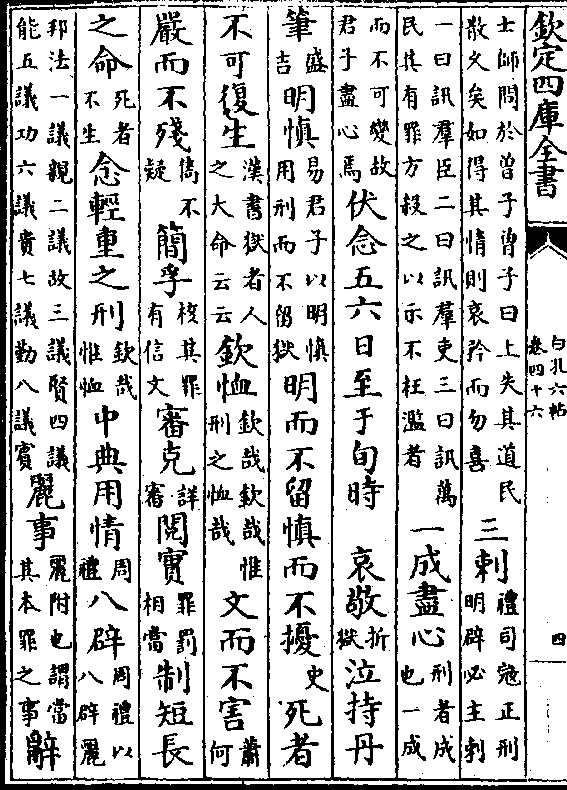 欽定四庫全書
白孔六帖
卷四十六
四
士師問於曾子曾子曰上失其道民
散久矣如得其情則哀矜而勿喜
三刺
禮司寇正刑
明辟必主刺
一曰訊羣臣二曰訊羣吏三曰訊萬
民其有罪方殺之以示不枉濫者
一成盡心
刑者成
也一成
而不可變故
君子盡心焉
伏念五六日至于旬時
哀敬
折
獄
泣持丹
筆
盛
吉
明慎
易君子以明慎
用刑而不留獄
明而不留慎而不擾
史
死者
不可復生
漢書獄者人
之大命云云
欽恤
欽哉欽哉惟
刑之恤哉
文而不害
蕭
何
嚴而不殘
雋不
疑
簡孚
核其罪
有信文
審克
詳
審
閱實
罪罰
相當
制短長
之命
死者
不生
念輕重之刑
欽哉
惟恤
中典用情
周
禮
八辟
周禮以
八辟麗
邦法一議親二議故三議賢四議
能五議功六議貴七議勤八議賓
麗事
麗附也謂當
其本罪之事
辭